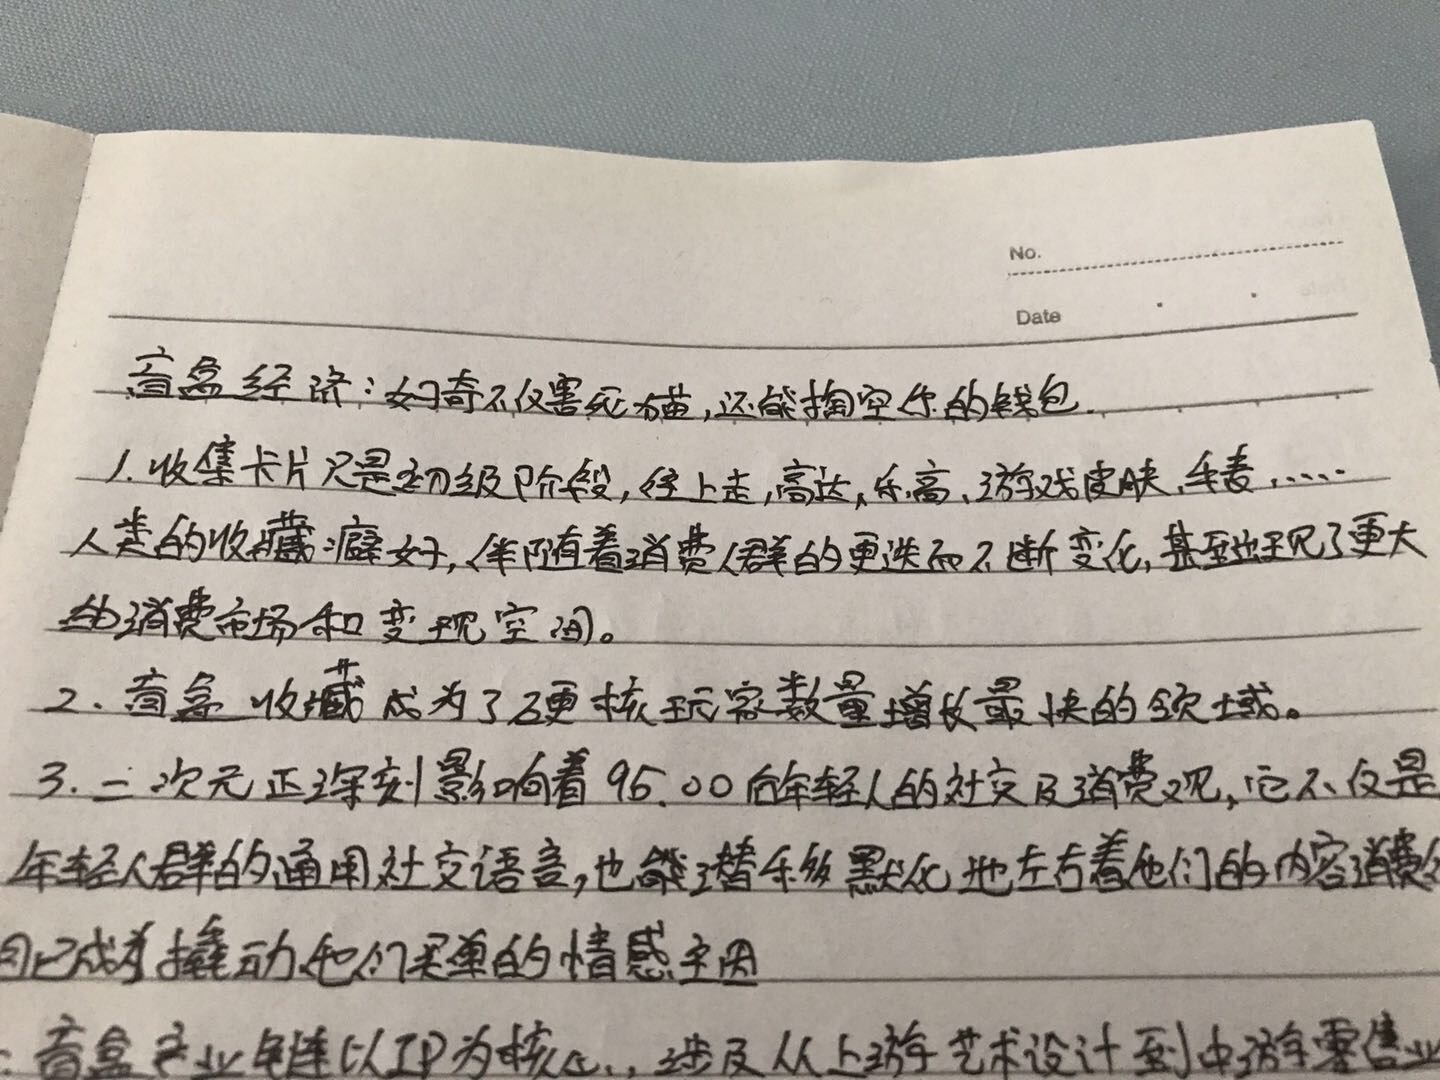 No.
Date
盲盒经济:好奇不仅害死猫,还能掏空你的钱包.
1.收集卡片只是初级阶段,往上走,高达,乐高、游戏皮肤,手表,.....
人类的收藏癖好,伴随着消费人群的更迭而不断变化,甚至出现了更大
的消费市场和变现空间。
2、盲盒收藏成为了硬核玩家数量增长最快的领域。
3.二次元正深刻影响着95.00后年轻人的社交及消费观,它不仅是
年轻人群的通用社交语言,也能潜移默化地左右着他们的内容消费
已成为撬动他们买单的情感主因
盲盒产业链以IP为核心.,涉及从上游艺术设计到中游零售业